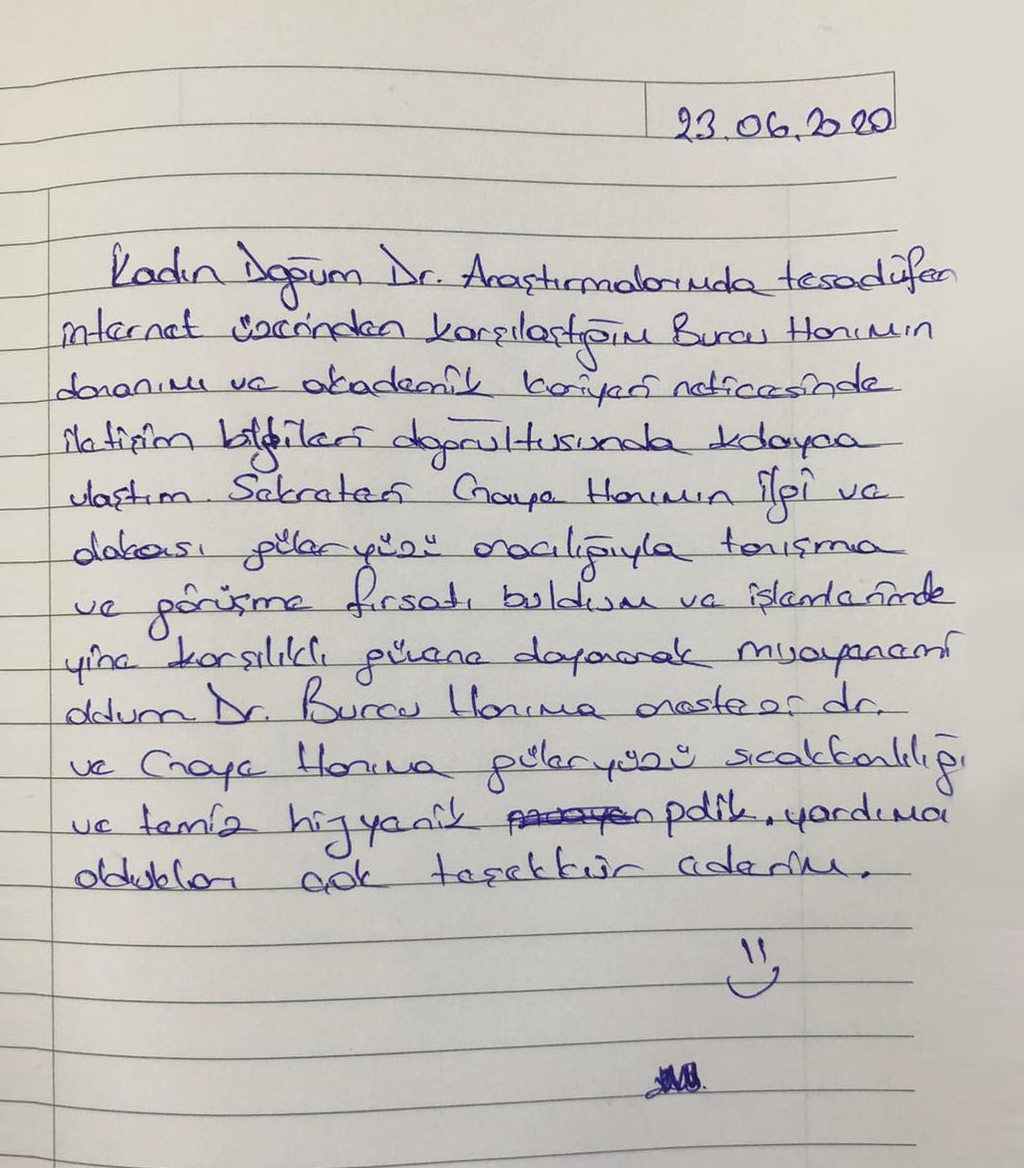 23.06.2020
Kadın Doğum Dr. Araştırmalarımda tesadüfen
internet üzerinden karşılaştığım Burcu Hanımın
donanımı ve akademik kariyeri neticesinde
iletişim bilgileri doğrultusunda kolayca
ulaştım. Sekreteri Hanımın ilgi ve
alakası güler yüzü aracılığıyla tanışma
ve görüşme fırsatı buldum ve işlemlerimde
yine karşılıklı güvene dayanarak muayenemi
oldum Dr. Burcu Hanıma anestezi dr.
ve Hanıma güleryüzü sıcakkanlılığı
ve temiz higyenik pdik, yardımcı
oldukları çok teşekkür ederim.